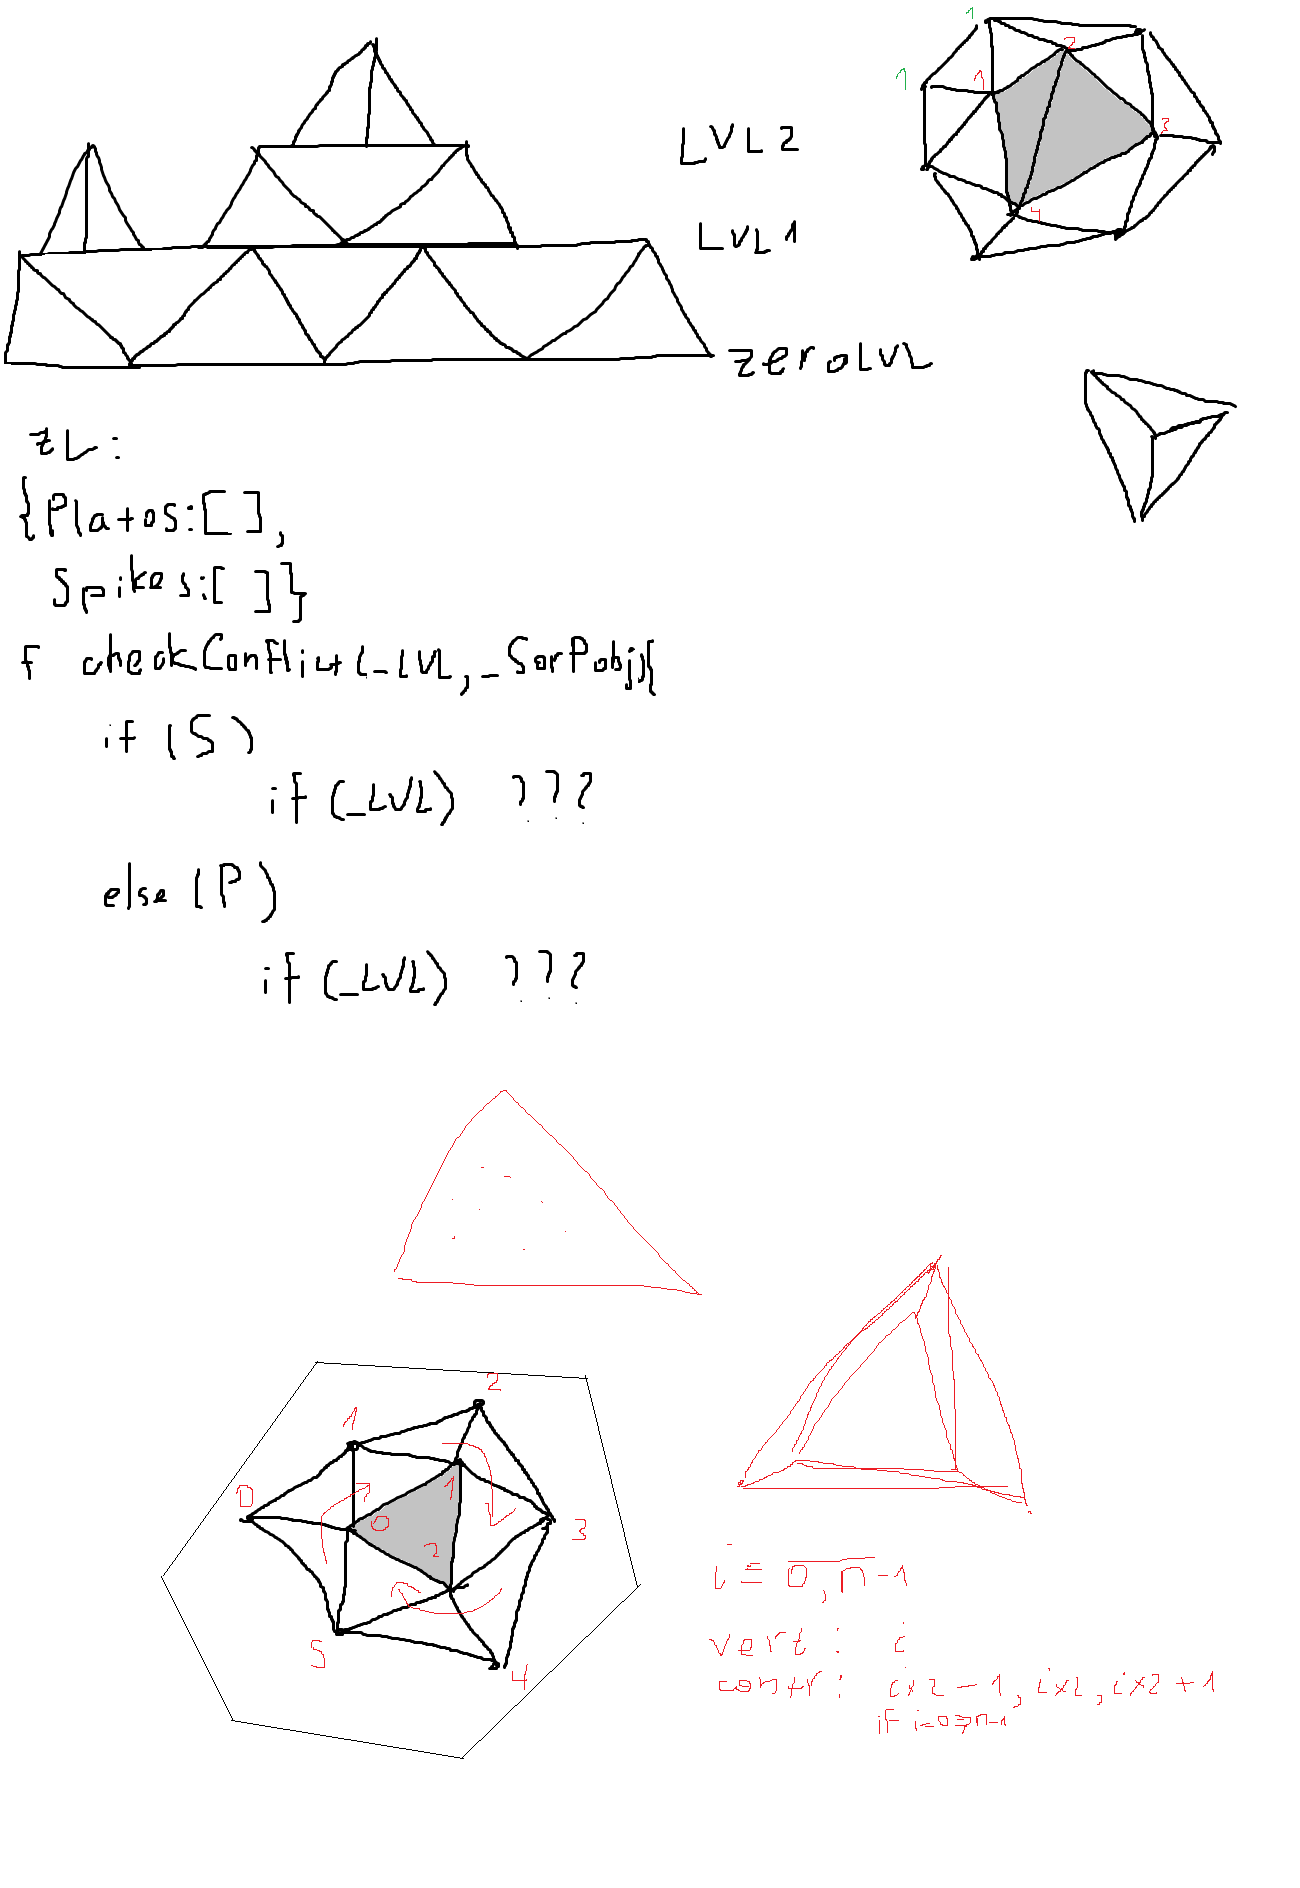 LVL 2
LVL 1
zeroLVL
1
1
1
2
3
4
zL:
{Platos:[],
Spikes:[ ]}
f checkConflict(_LVL,_SorPobj){
if (S)
if (_LVL) ???
else (P)
if (_LVL) ???
2
1
0
1
0
2
3
5
4
i = 0,n-1
vert: i
contr: i×2-1, i×2, i×2+1
if i=0 => n-1